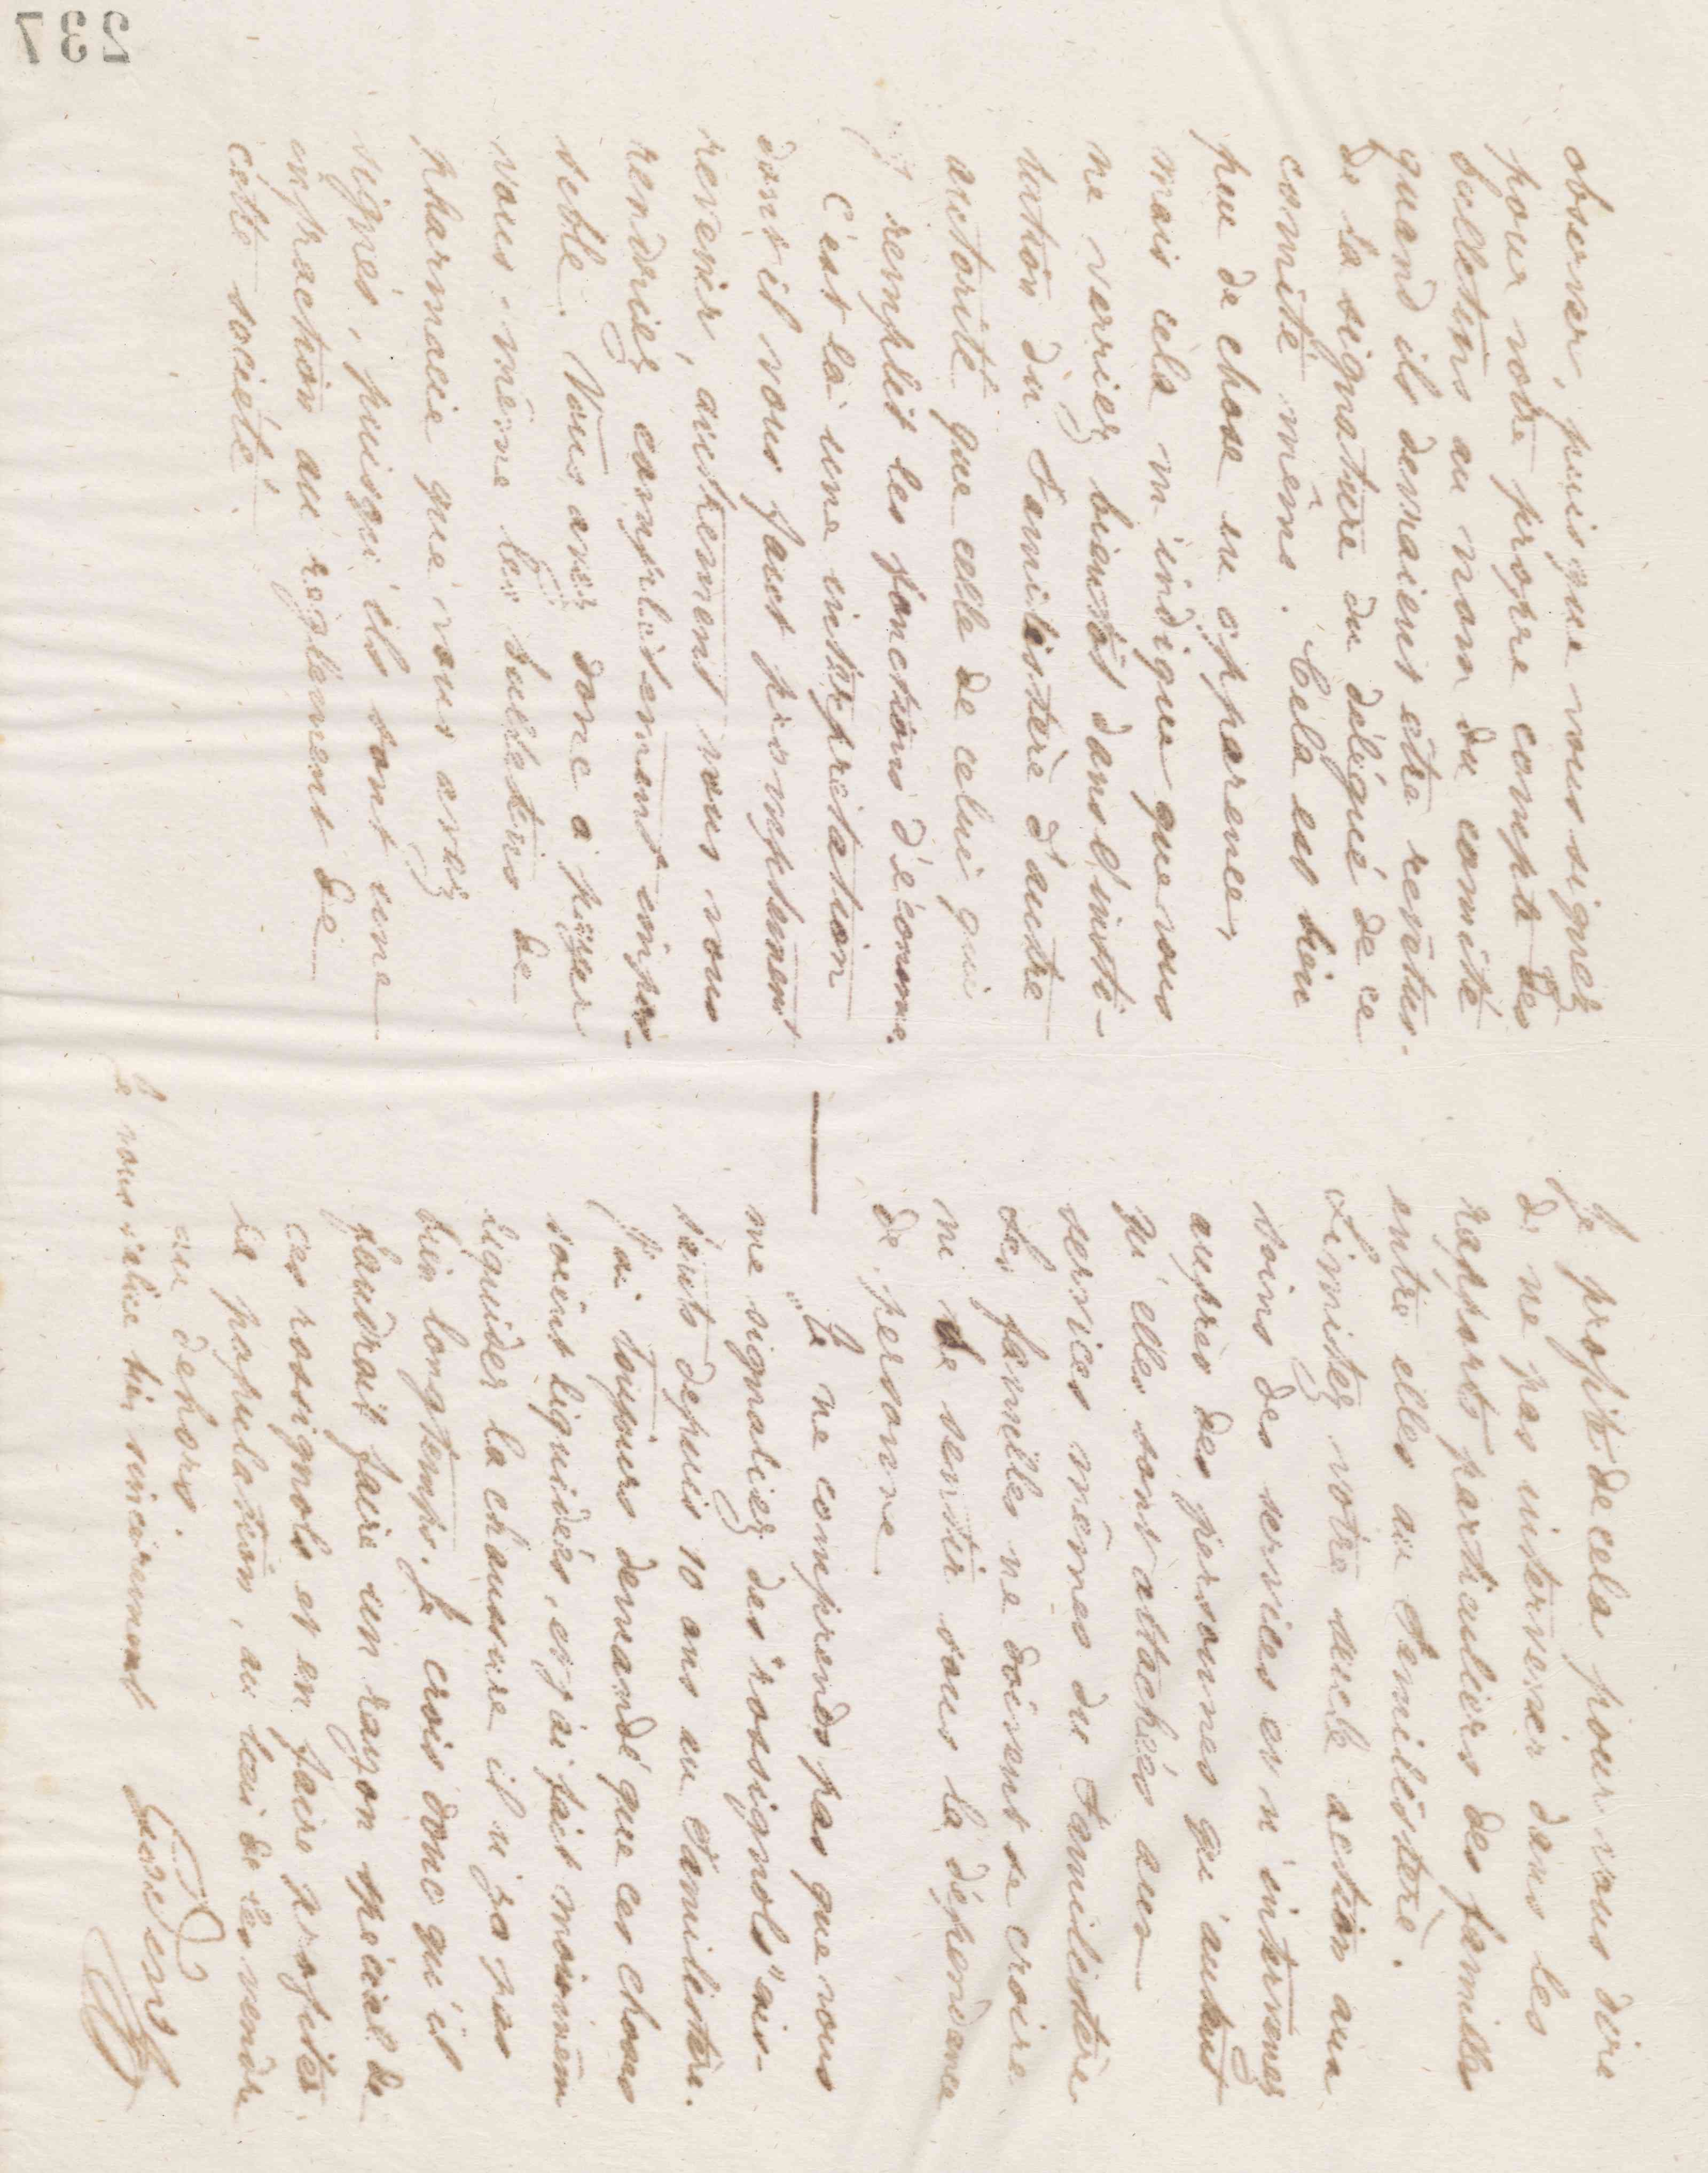 237
observer, puisque vous signez
pour votre propre compte des
bulletins au nom du comité
quand ils devraient être revêtus
de la signature du délégué de ce
comité même. Cela est bien
peu de chose en apparence,
mais cela m'indique que vous
ne verriez bientôt dans l'insti-
tution du Familistère d'autre
autorité que celle de celui qui
y remplit les fonctions d'économe.
C'est là une interprétation
dont il vous faut promptement
revenir, autrement vous vous
rendriez complètement impos-
sible. Vous avez donc à payer
vous-même les bulletins de
pharmacie que vous avez
signés, puisqu'ils sont une
infraction au règlement de
cette société.
Je profite de cela pour vous dire
de ne pas intervenir dans les
rapports particuliers des familles
entre elles au Familistère.
Limitez votre seule action aux
soins des services et n'intervenez
auprès des personnes qu'autant
qu'elles sont attachées aux
services mêmes du Familistère
Les familles ne doivent se croire
ni se sentir sous la dépendance
de personne.
Je ne comprends pas que vous
me signaliez des "rossignols" exis-
tants depuis 10 ans au Familistère.
J'ai toujours demandé que ces choses
soient liquidées, et j'ai fait moi-même
liquider la chaussure il n'y a pas
bien longtemps. Je crois donc qu'il
faudrait faire un rayon spécial de
ces rossignols et en faire profiter
la population, au lieu de les vendre
au dehors.
Je vous salue bien sincèrement